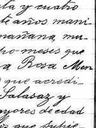 ta y cuatro
te años mani
mañana mu
ro meses que
a Rosa Men
que acredi-
Salazar y
ayores de edad